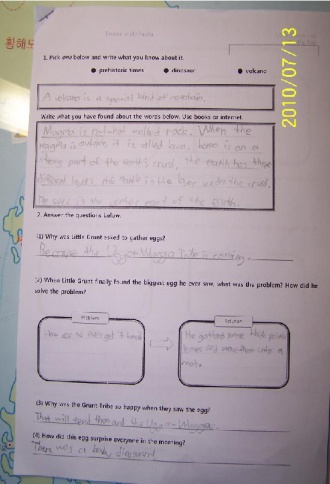 황해도
2010/07/13
1. Pick one below and write what you know about it.
● prehistoric times ● dinosaur ● volcano
A volcano is a special kind of mountain.
Write what you have found about the words below. Use books or internet.
Magma is red-hot melted rock. When the
magma is outside it is called lava.
part of the earth's crust, the earth has three
different layers, the mantle is the layer under the crust.
The core is the center part of the earth.
2. Answer the questions below.
(1) Why was Little Grunt asked to gather eggs?
Because the Ugga-Wugga Tribe is coming.
(2) When Little Grunt finally found the biggest egg he ever saw, what was the problem? How did he
solve the problem?
Problem
Solution
He gathered some
and make them into a
mat.
(3) Why was the Grunt Tribe so happy when they saw the egg?
That will feed them and the Ugga-Wuggas.
(4) How did this egg surprise everyone in the morning?
There was a baby dinosaur.